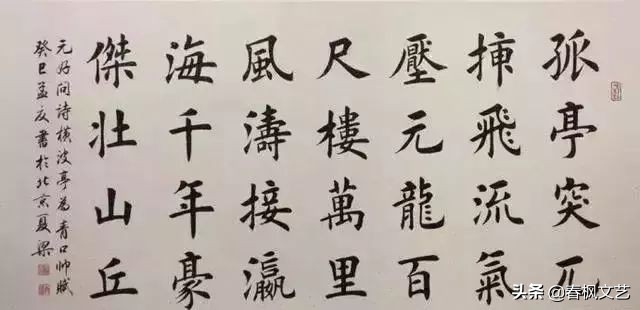 孤亭突兀
挿飛流氣
壓元龍百
尺樓萬里
風濤接瀛
海千年豪
傑壯山丘
元好問詩橫波亭為青口帥賦
癸巳孟夏書於北京夏梁
头条 @春枫文艺